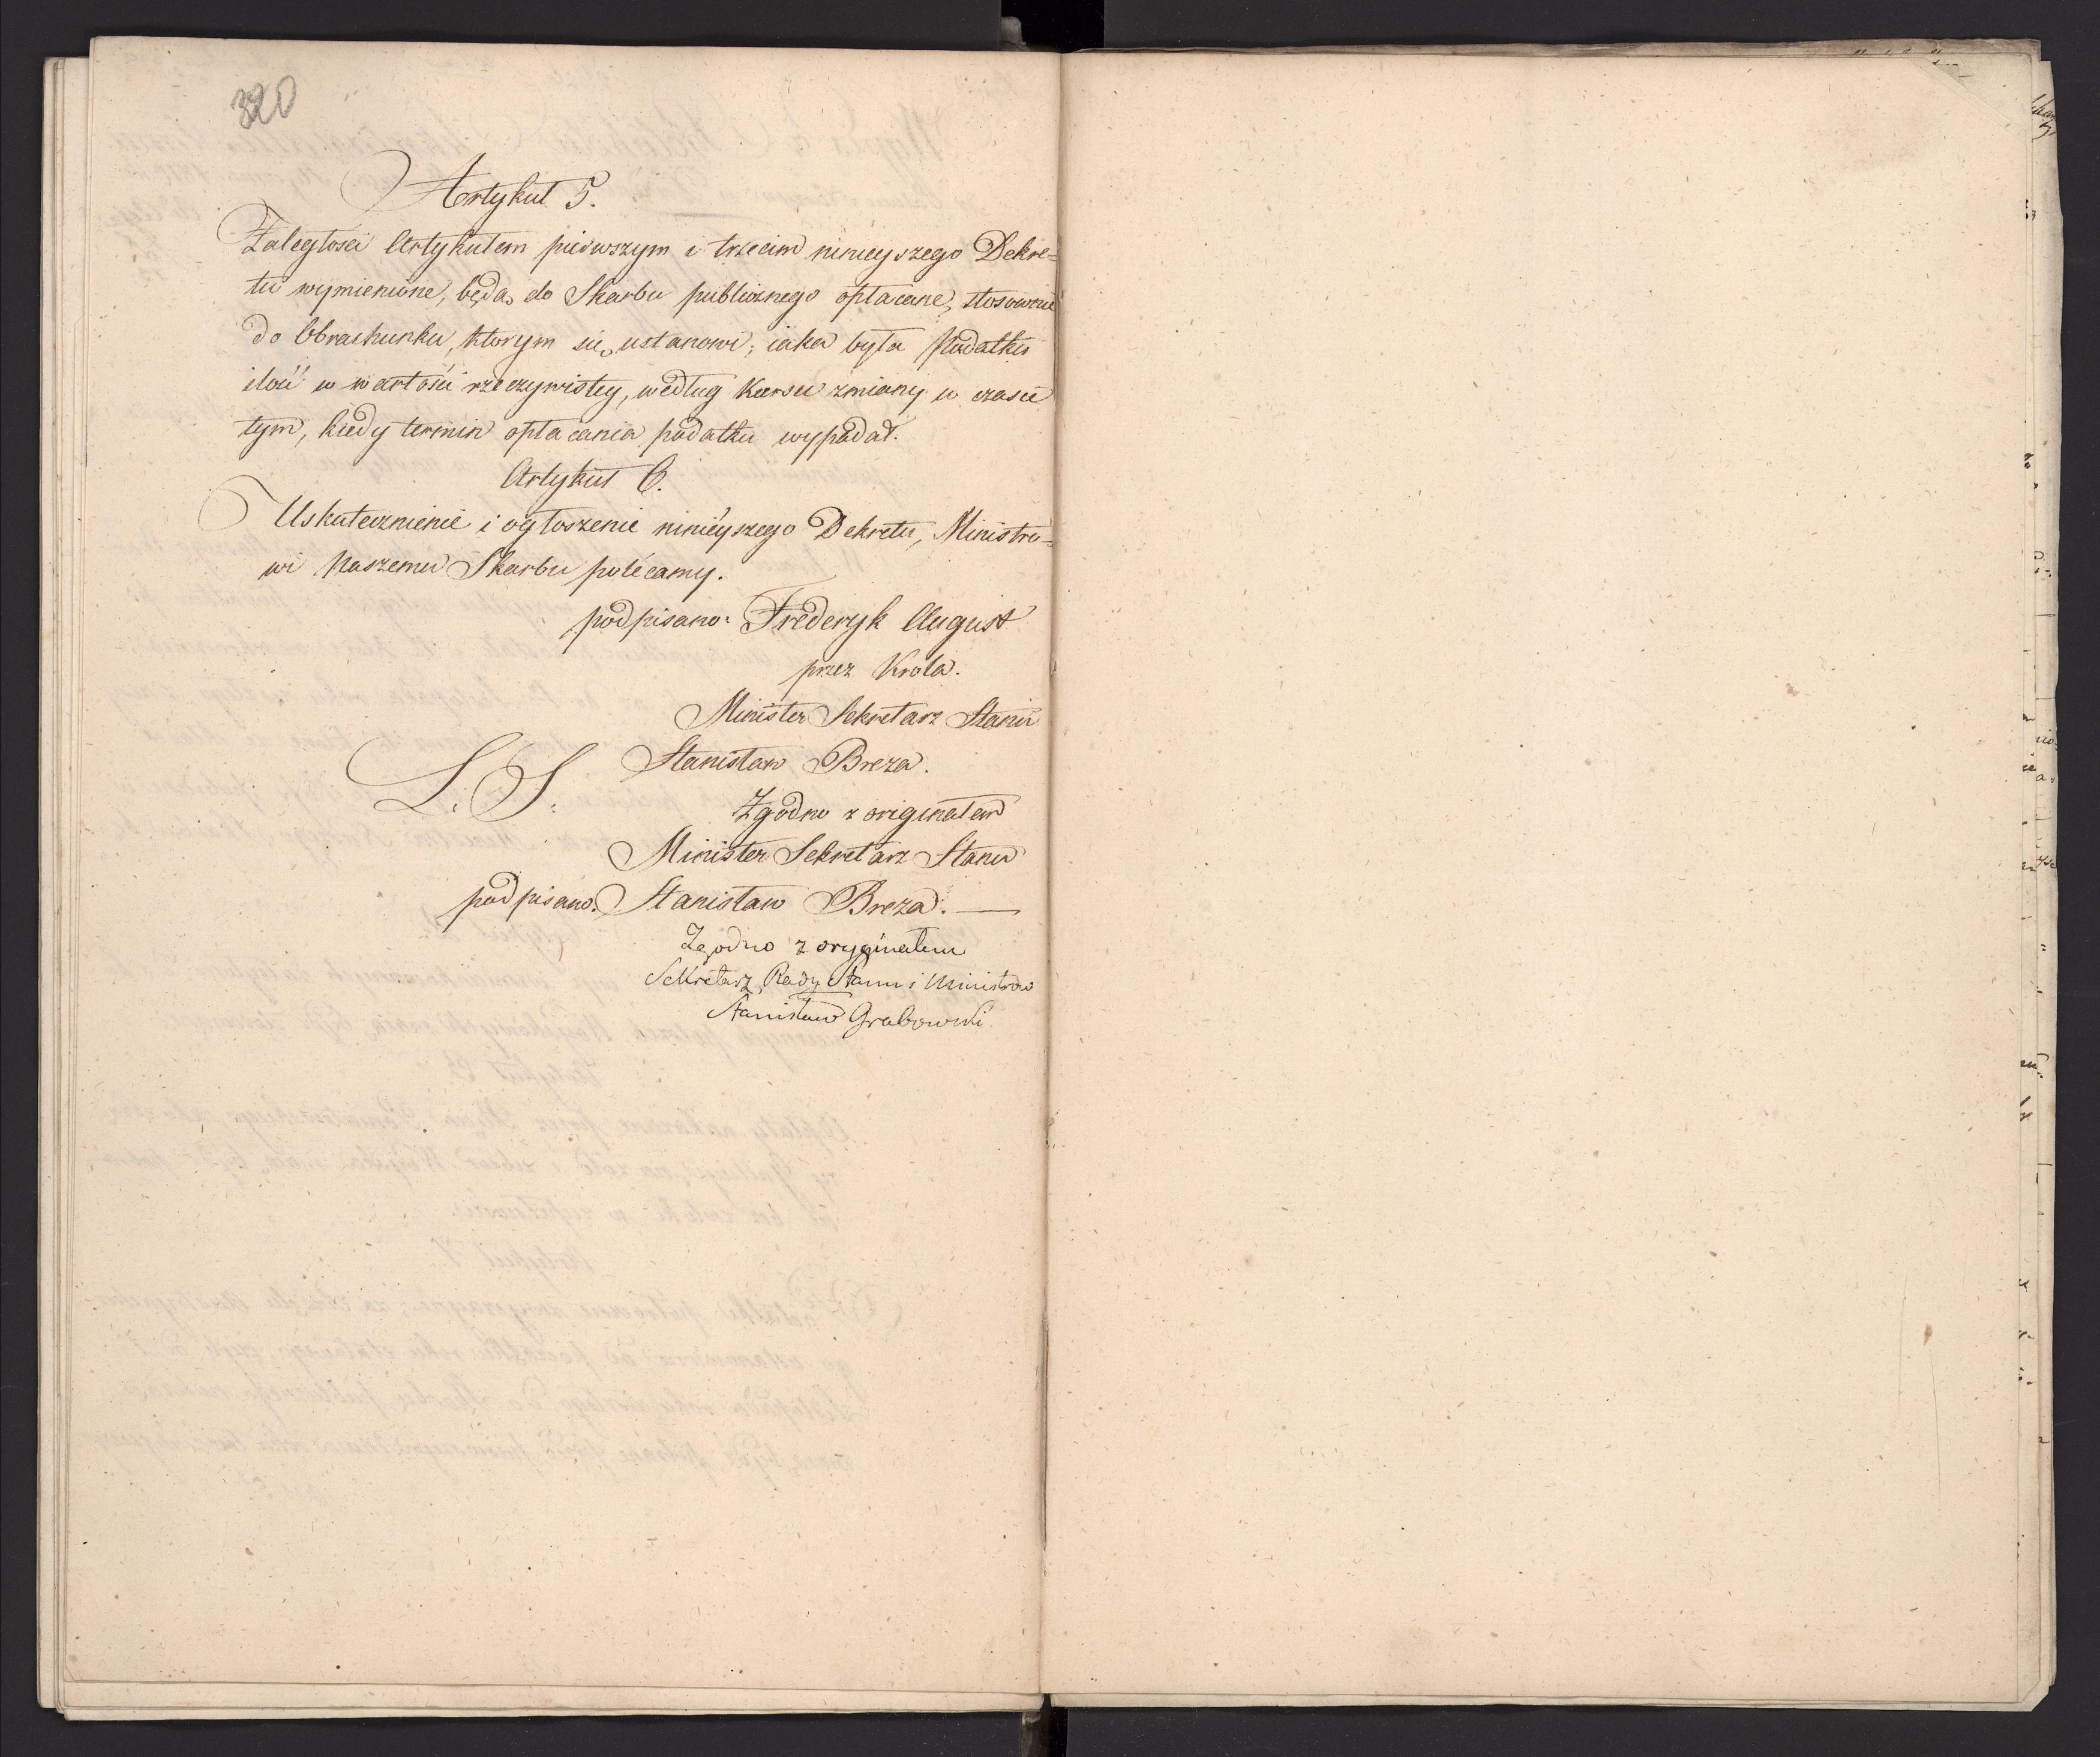 320
Artykuł 5.
Zaległości Artykułem pierwszym i trzecim ninieyszego Dekre=
tu wymienione, będą do Skarbu publicznego opłacane, stosownie
do Obrachunku, którym się ustanowi; iaka była Podatku
ilość w wartości rzeczywistey, według Kursu zmiany w czasie
tym, kiedy termin opłacania podatku wypadał.
Artykuł 6.
Uskutecznienie i ogłoszenie ninieyszego Dekretu, Ministro=
wi Naszemu Skarbu polecamy.
podpisano: Frederyk August
przez Króla.
Minister Sekretarz Stanu
L. S. Stanisław Breza.
Zgodno z originałem
Minister Sekretarz Stanu
podpisano. Stanisław Breza.
Zgodno z oryginałem
Sekretarz Rady Stanu i Ministrow
Stanisław Grabowski